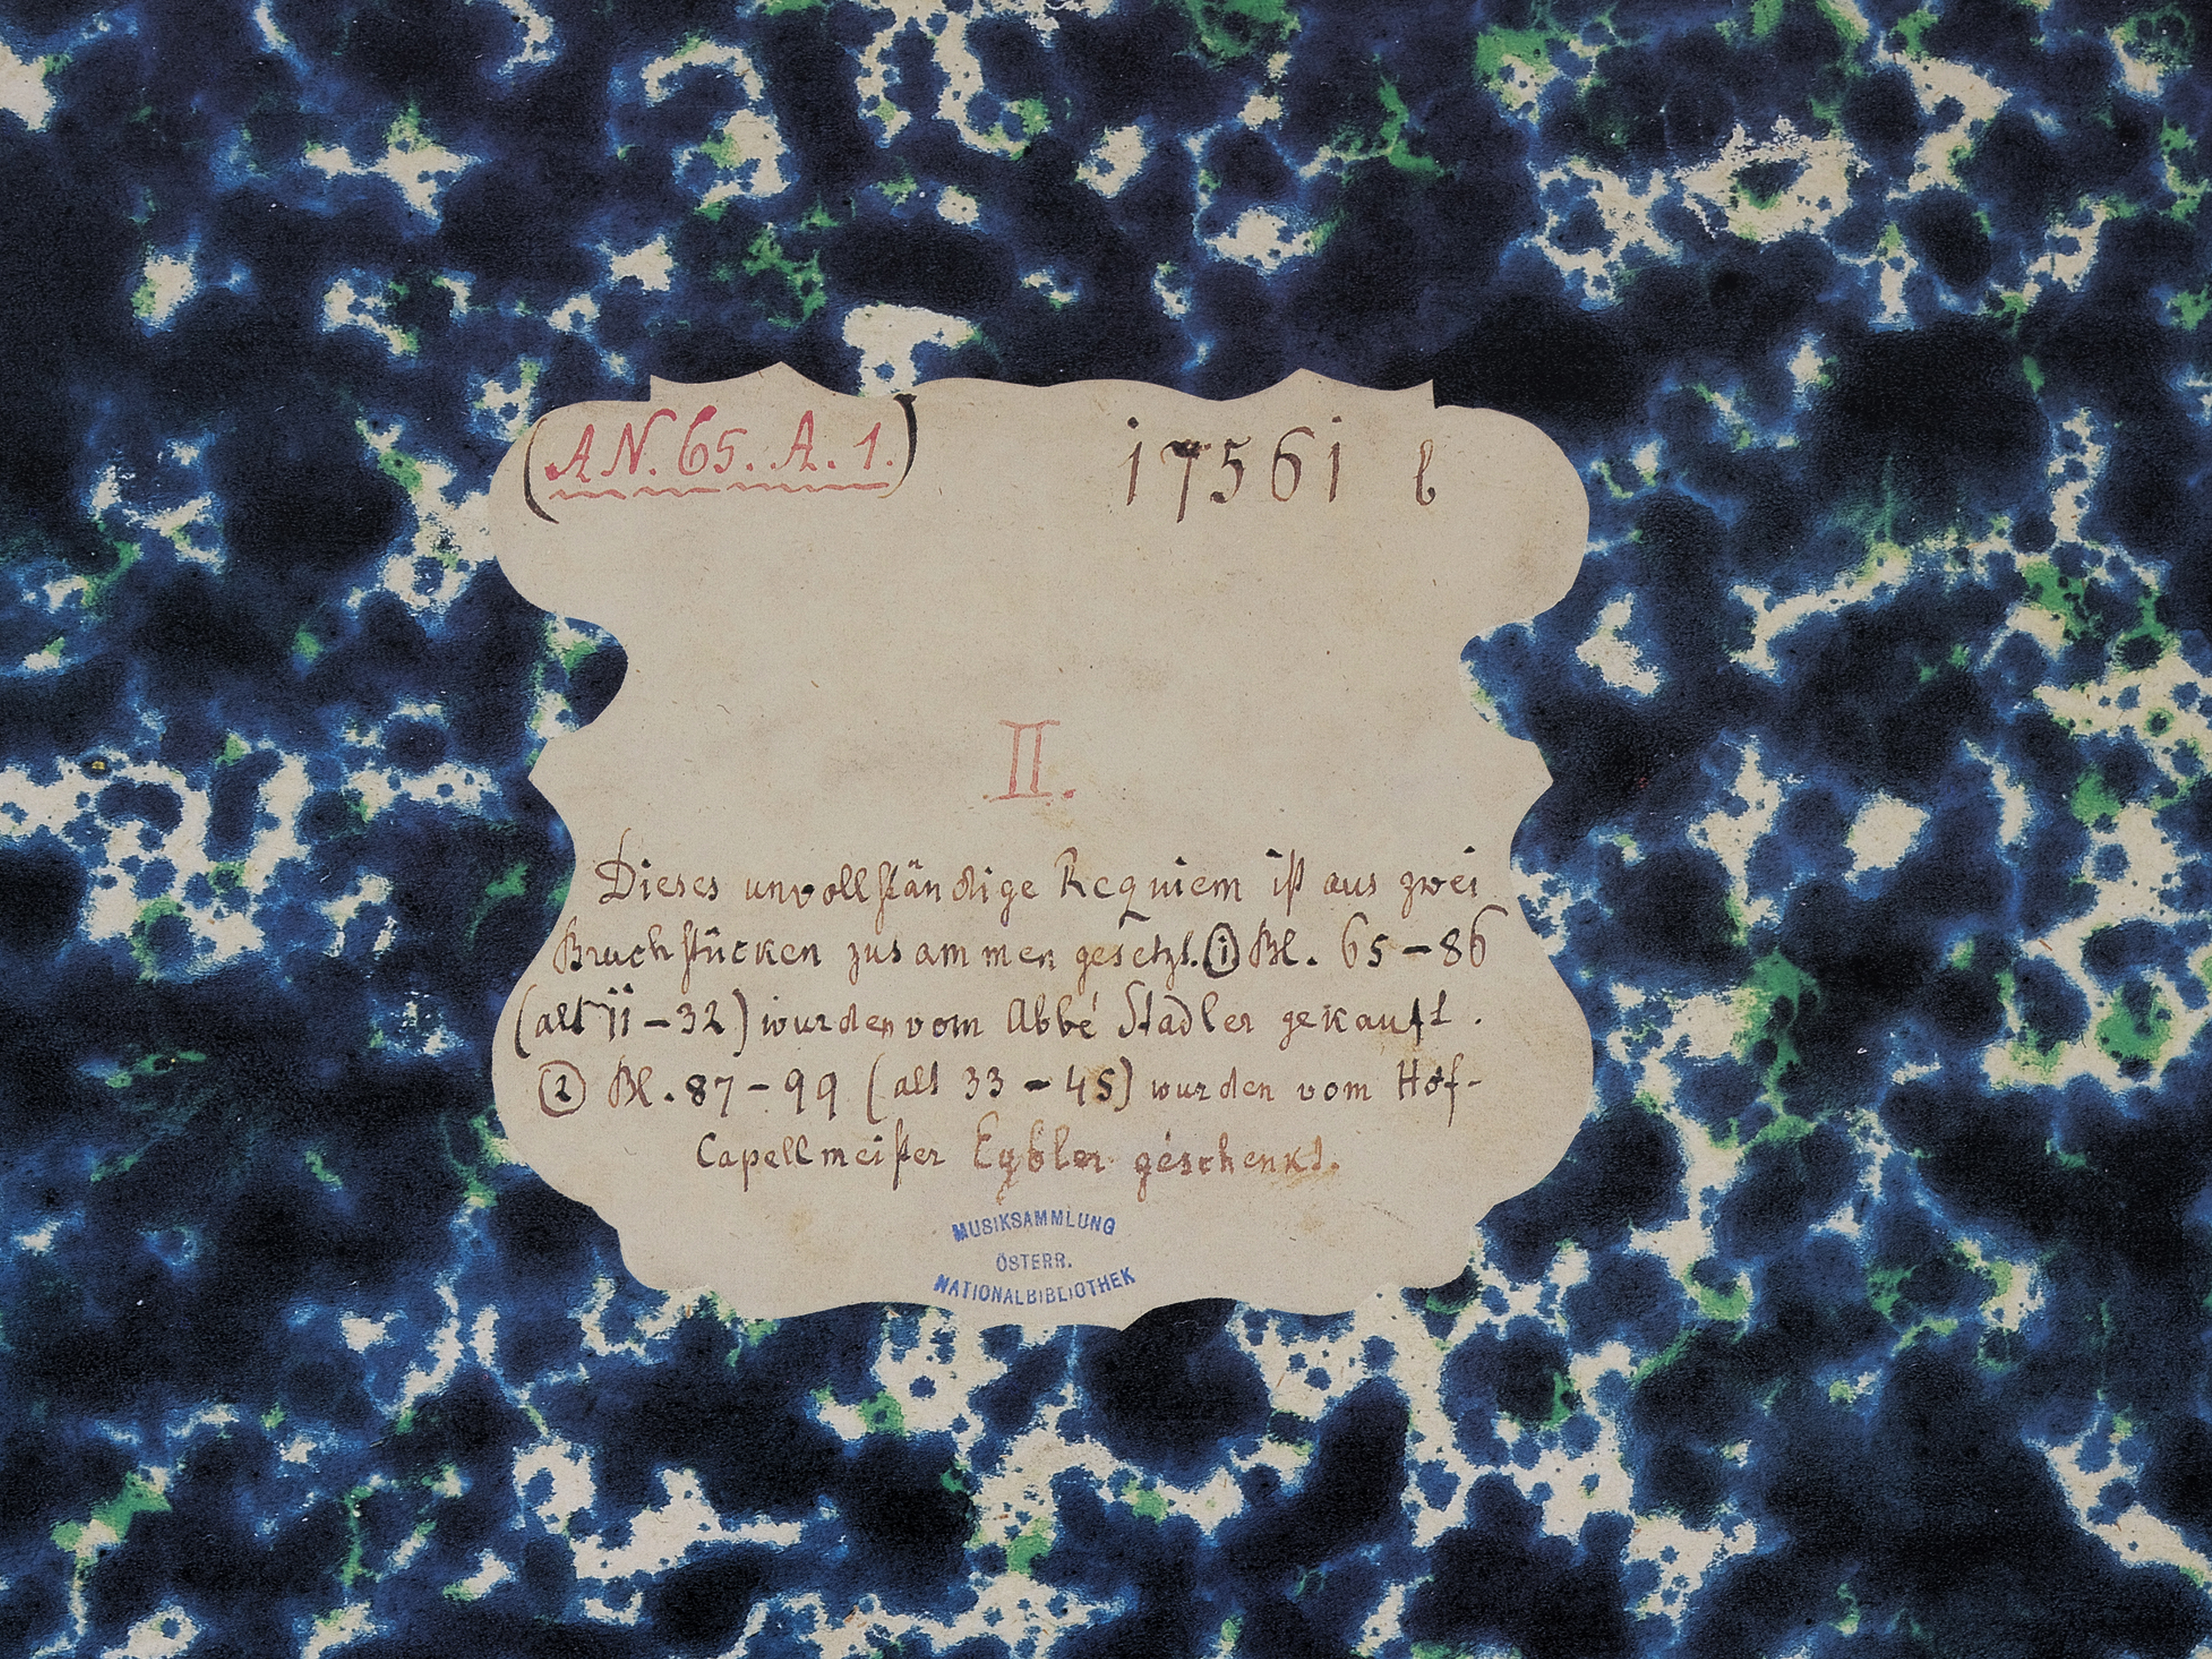 (A N. 65. A. 1.) 17561 b
II.
Dieses unvollständige Requiem ist aus zwei
Bruchstücken zusammen gesetzt. ① Bl. 65-86
(alt 11-32) wurden vom Abbé Stadler gekauft.
② Bl. 87-99 (alt 33-45) wurden vom Hof-
Capellmeister Eybler geschenkt.
MUSIKSAMMLUNG
ÖSTERR.
NATIONALBIBLIOTHEK